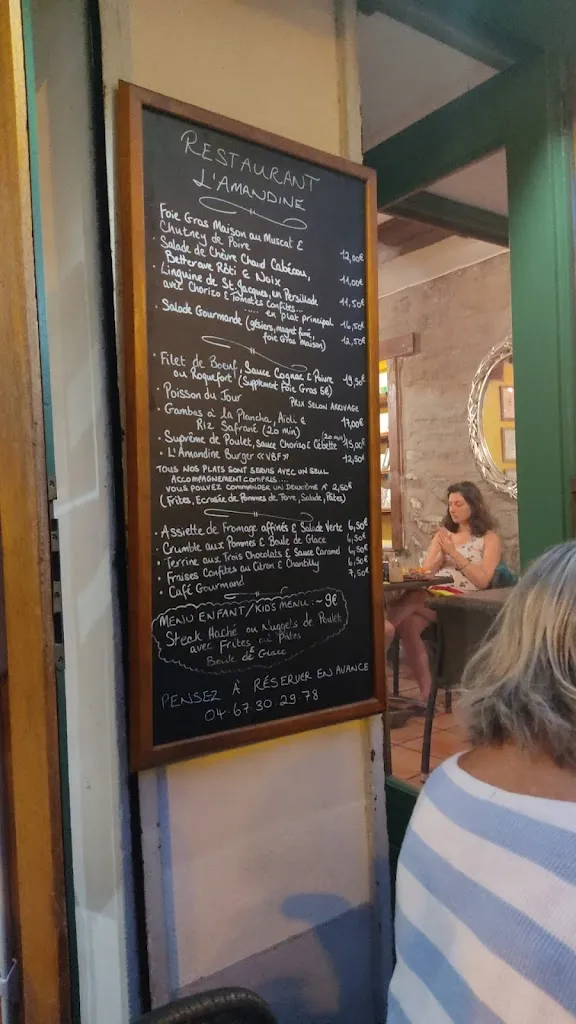 RESTAURANT
L'AMANDINE
Foie Gras Maison au Muscat &
Chutney de Poire 12,00€
· Salade de Chèvre Chaud Cabécou,
Betterave Rôti & Noix 11,00€
· Linguine de St. Jacques, en Persillade
avec Chorizo & Tomates Confites... 11,50€
..... en plat principal 16,50€
· Salade Gourmande (gésiers, magret fumé, 12,50€
foie Gras maison)
· Filet de Boeuf, Sauce Cognac & Poivre
ou Roquefort (Supplement Foie Gras 5€) 19,50€
· Poisson du Jour PRIX SELON ARRIVAGE
· Gambas à la Plancha, Aïoli &
Riz Safrané (20 min) 17,00€
· Suprême de Poulet, sauce Chorizo & Cébette (20 min) 15,00€
· L'Amandine Burger «VBF» 12,50€
TOUS NOS PLATS SONT SERVIS AVEC UN SEUL
ACCOMPAGNEMENT COMPRIS....
VOUS POUVEZ COMMANDER UN DEUXIÈME À 2,50€
(Frites, Ecrasée de Pommes de Terre, Salade, Pâtes)
· Assiette de Fromage affinés & Salade Verte 6,50€
· Crumble aux Pommes & Boule de Glace 6,50€
· Terrine aux Trois Chocolats & Sauce Caramel 6,50€
· Fraises Confites au Citron & Chantilly 6,50€
· Café Gourmand 7,50€
MENU ENFANT/KIDS MENU:~9€
Steak Haché ou Nuggets de Poulet
avec Frites ou Pâtes
&
Boule de Glace
PENSEZ À RÉSERVER EN AVANCE
04.67.30.29.78